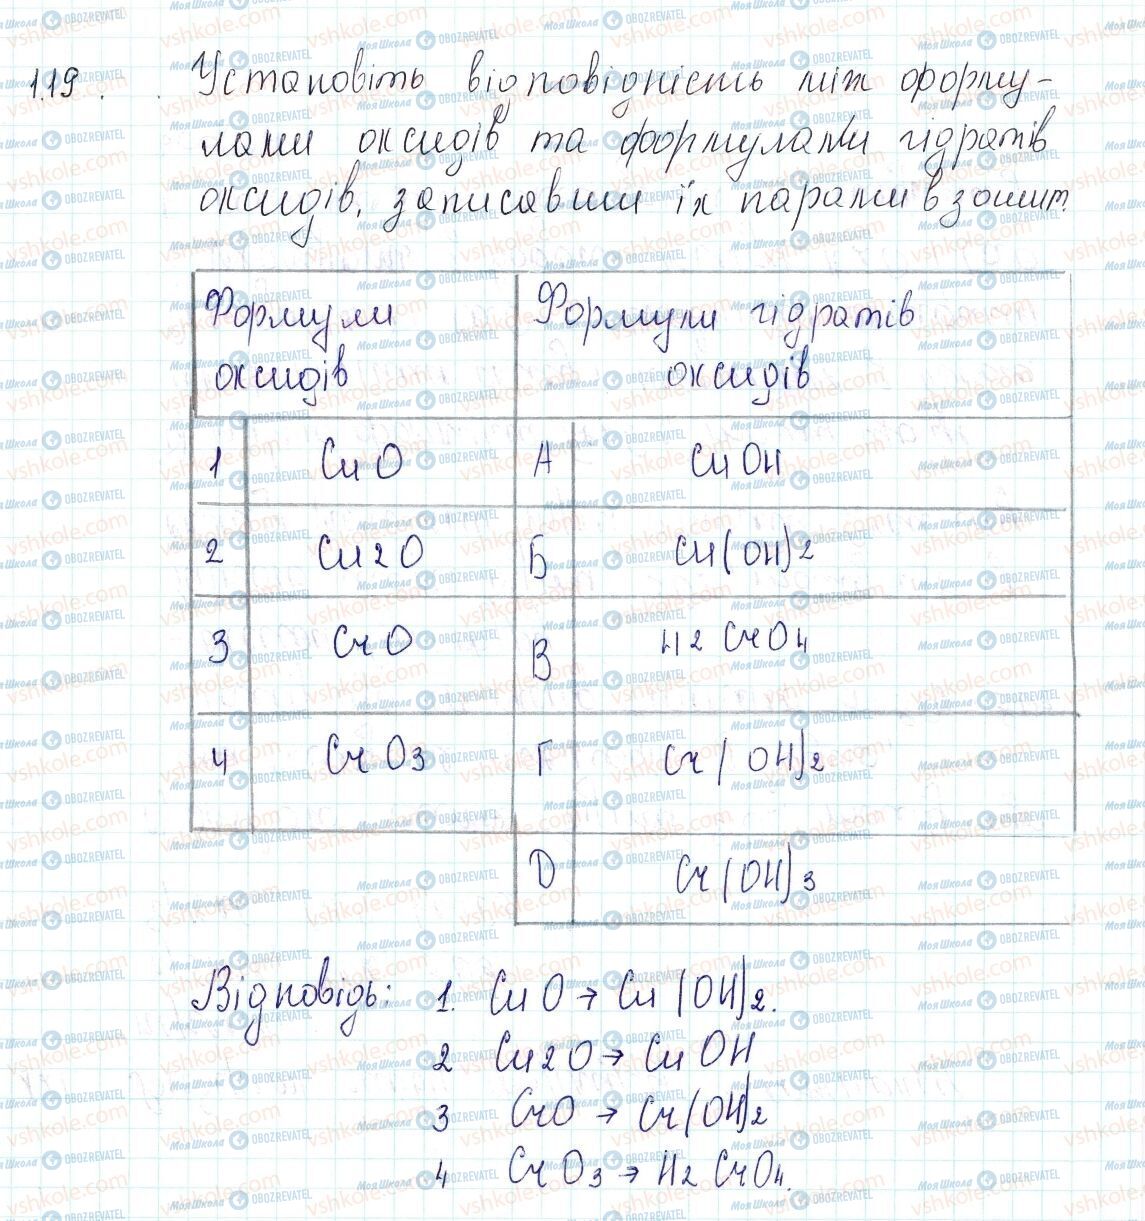 1.19. Установіть відповідність між форму-
лами оксидів та формулами гідратів
оксидів, записавши їх парами в зошит.
Формули оксидів | Формули гідратів оксидів
1 CuO А CuOH
2 Cu2O Б Cu(OH)2
3 CrO В H2CrO4
4 CrO3 Г Cr(OH)2
Д Cr(OH)3
Відповідь: 1. CuO → Cu(OH)2.
2 Cu2O → CuOH
3 CrO → Cr(OH)2
4 CrO3 → H2CrO4.
МояШкола OBOZREVATEL
vshkole.com